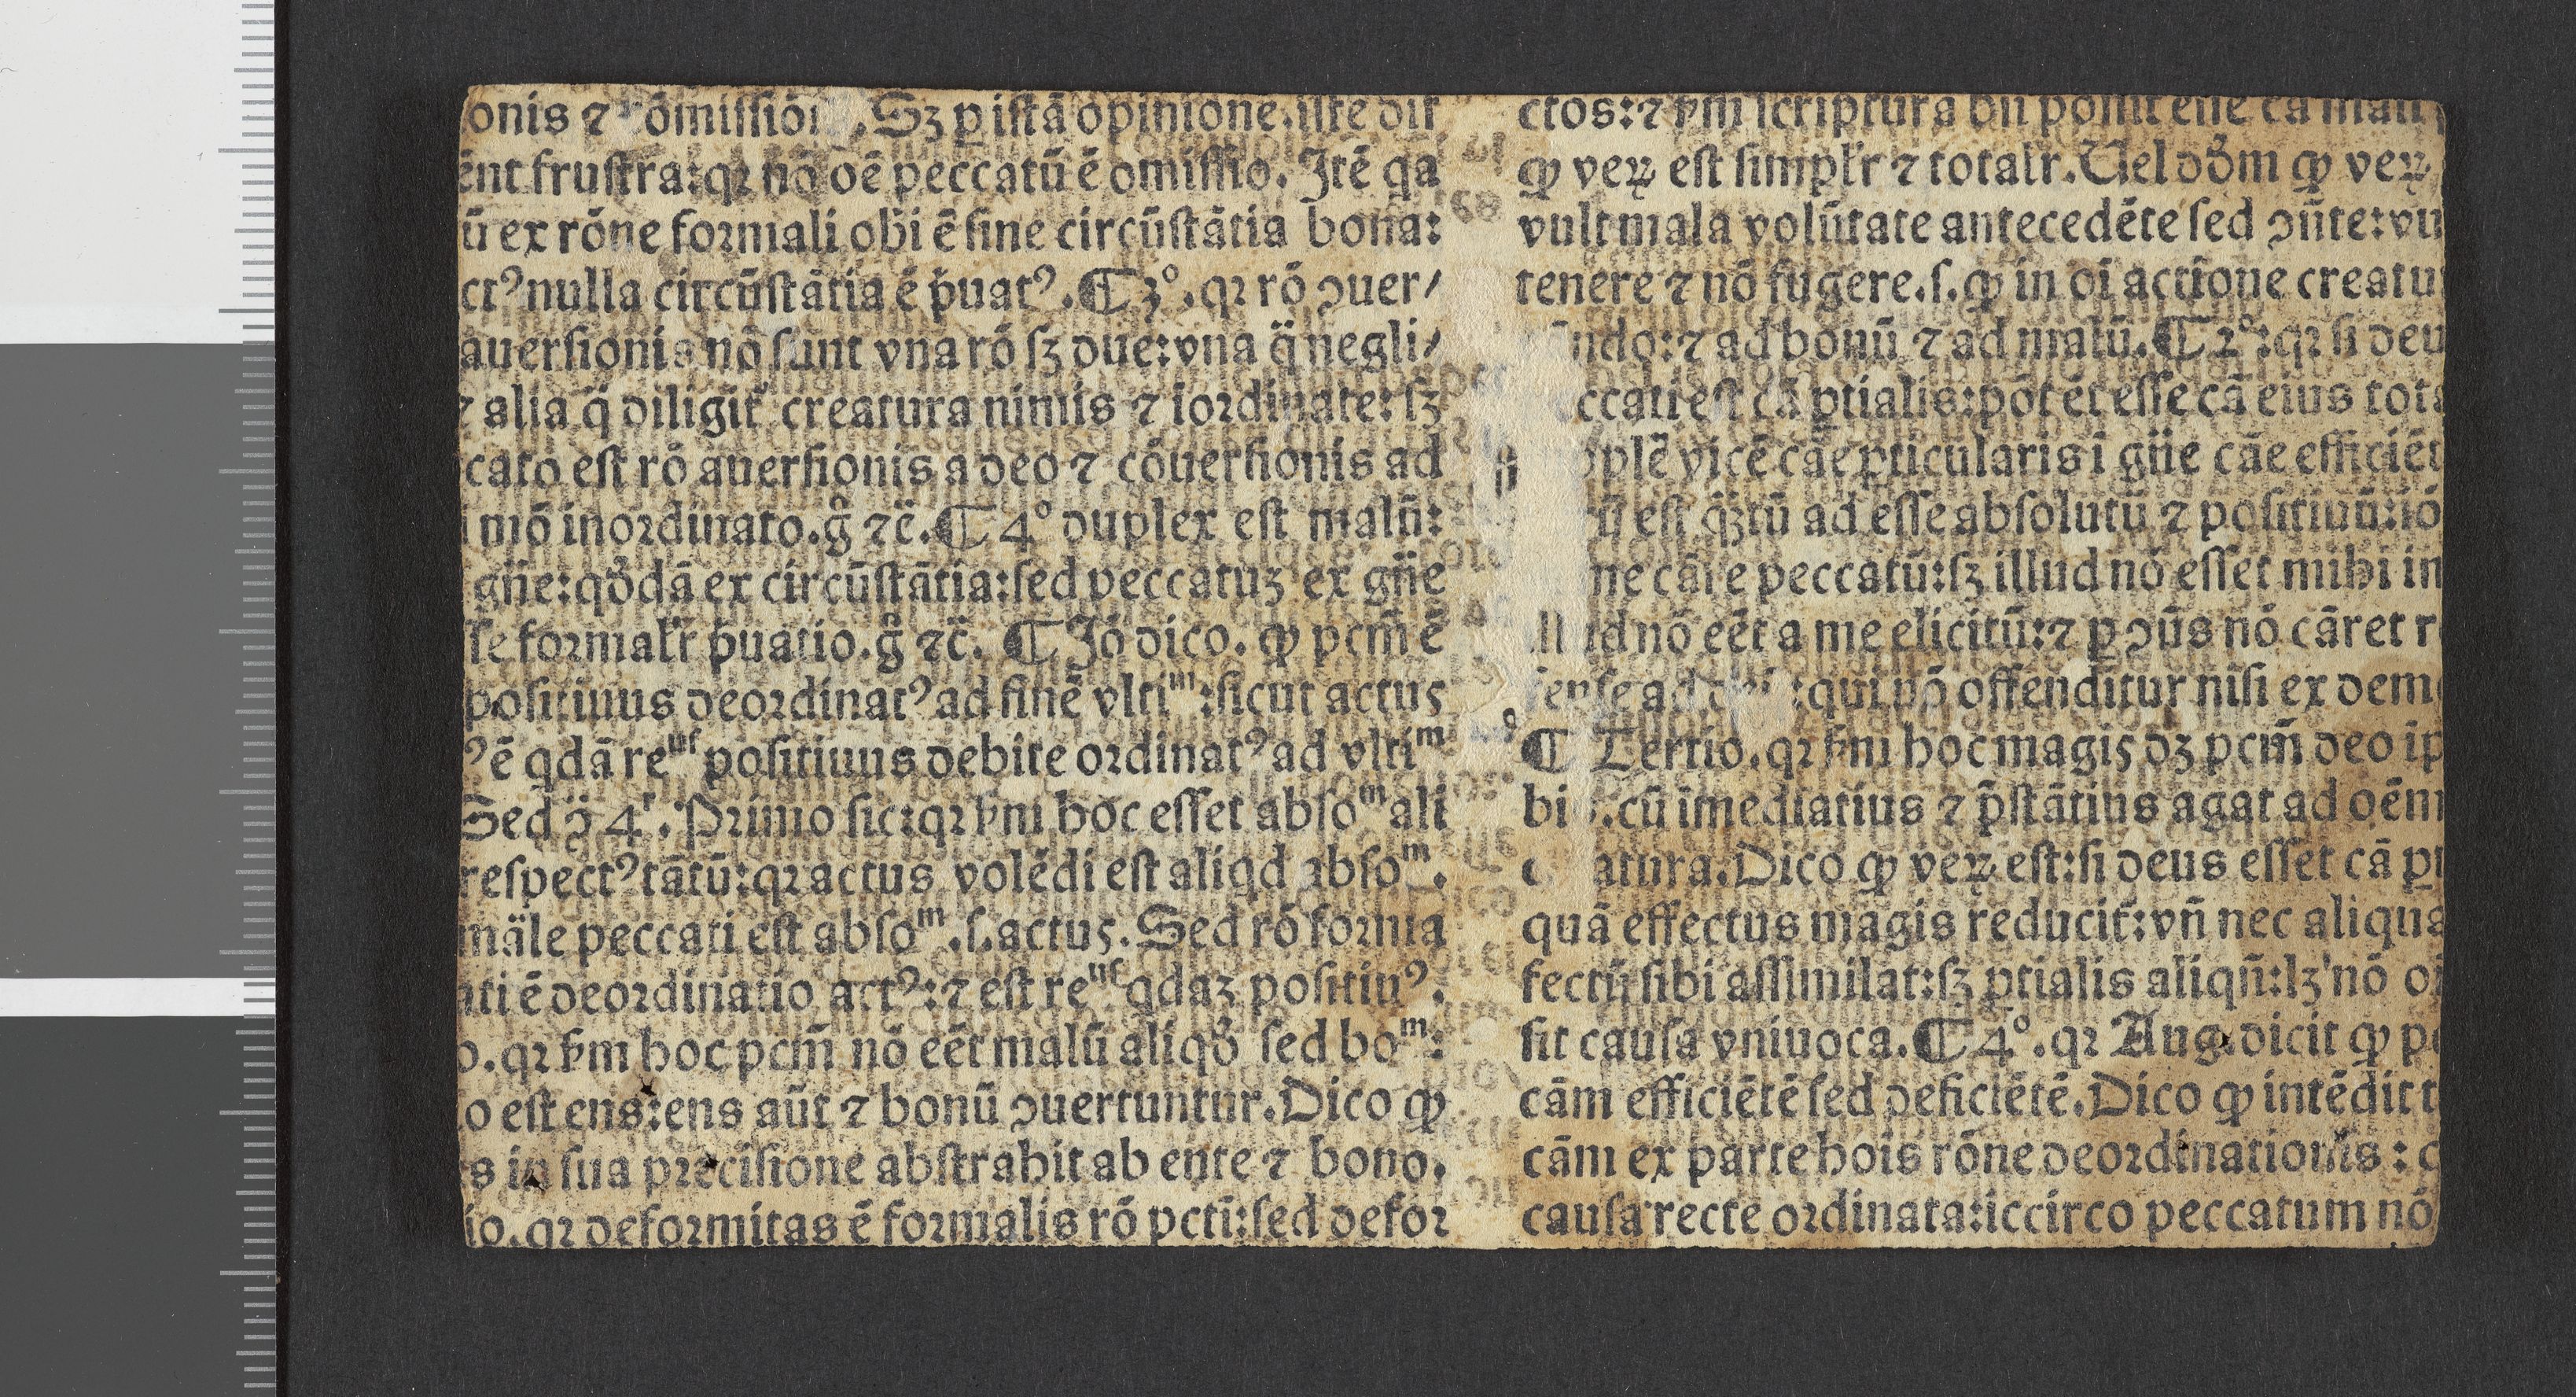 onis ⁊ ōmissiō .Sꝫ ꝑ istā opinione.iste dif
ēnt frustra:qꝛ nō oē peccatū ē omissio. Itē qa
ū ex rōne formali obi ē sine circūstātia bona:
ctꝰ nulla circūstātia ē p̄uatꝰ.¶ 3º.qꝛ rō ꝯuer/
auersionis nō sunt vna rō sꝫ due:vna q̄ negli/
⁊ alia q̄ diligit᷑ creatura nimis ⁊ iordinate:sꝫ
cato est rō auersionis a deo ⁊ cōuersionis ad
mō inordinato.g̊ ⁊c̄.¶ 4º duplex est malū:
gn̄e:qd̓dā ex circūstātia:sed peccatuꝫ ex gn̄e
se formalr̄ p̄uatio.g̊ ⁊c̄. ¶ Iō dico. ꝙ pcm̄ ē
positiuus deordinatꝰ ad finē vltiᵐ:sicut actus
ꝰ ē qdā reᵘˢ positiuus debite ordinatꝰ ad vltiᵐ
Sed ꝯ̄ 4ʳ. Primo sic:qꝛ ẜm hoc esset absoᵐ ali
respectꝰ tātū:qꝛ actus volēdi est aliqd absoᵐ.
māle peccati est absoᵐ.s.actus. Sed rō forma
ati ē deordinatio actꝰ:⁊ est reᵘˢ qdaꝫ positiuꝰ.
o.qꝛ ẜm hoc pcm̄ nō eēt malū aliqd̓ sed boᵐ:
o est ens:ens aūt ⁊ bonū ꝯuertuntur.Dico ꝙ
s in sua precisione abstrahit ab ente ⁊ bono.
io.qꝛ deformitas ē formalis rō pcti:sed defor
ctos:⁊ ẜm scriptura bn̄ possit esse cā mali
ꝙ veꝝ est simplr̄ ⁊ totalr̄.Uel dd̓m ꝙ veꝝ
vult mala volūtate antecedēte sed ꝯn̄te:vu
tenere ⁊ nō fugere.s.ꝙ in oi actione creatu
ndo:⁊ ad bonū ⁊ ad malū.¶ 2º:qꝛ si deu
ccati est cā ꝑtialis:pōt ēt esse cā eius tota
plē vicē cāe ꝑticularis i gn̄e cāe efficiēt
ū est q̄ꝫtū ad esse absolutū ⁊ positiuū:iō
ne cāre peccatū:sꝫ illud nō esset mihi in
ll ud nō eēt a me elicitū:⁊ ꝑ ꝯn̄s nō cāret r
fense ad :qui nō offenditur nisi ex dem
¶ Tertio.qꝛ ẜm hoc magis dꝫ pcm̄ deo ip
bi .cū īmediatius ⁊ p̄stātius agat ad oēm
c atura.Dico ꝙ veꝝ est:si deus esset cā pr
quā effectus magis reducit᷑:vn̄ nec aliqua
fectū sibi assimilat:sꝫ ꝑtialis aliqn̄:lꝫ nō oī
sit causa vniuoca.¶ 4º.qꝛ Aug.dicit ꝙ pe
cām efficiētē sed deficiētē.Dico ꝙ intēdit t
cām ex parte hois rōne deordinationis : c
causa recte ordinata:iccirco peccatum nō